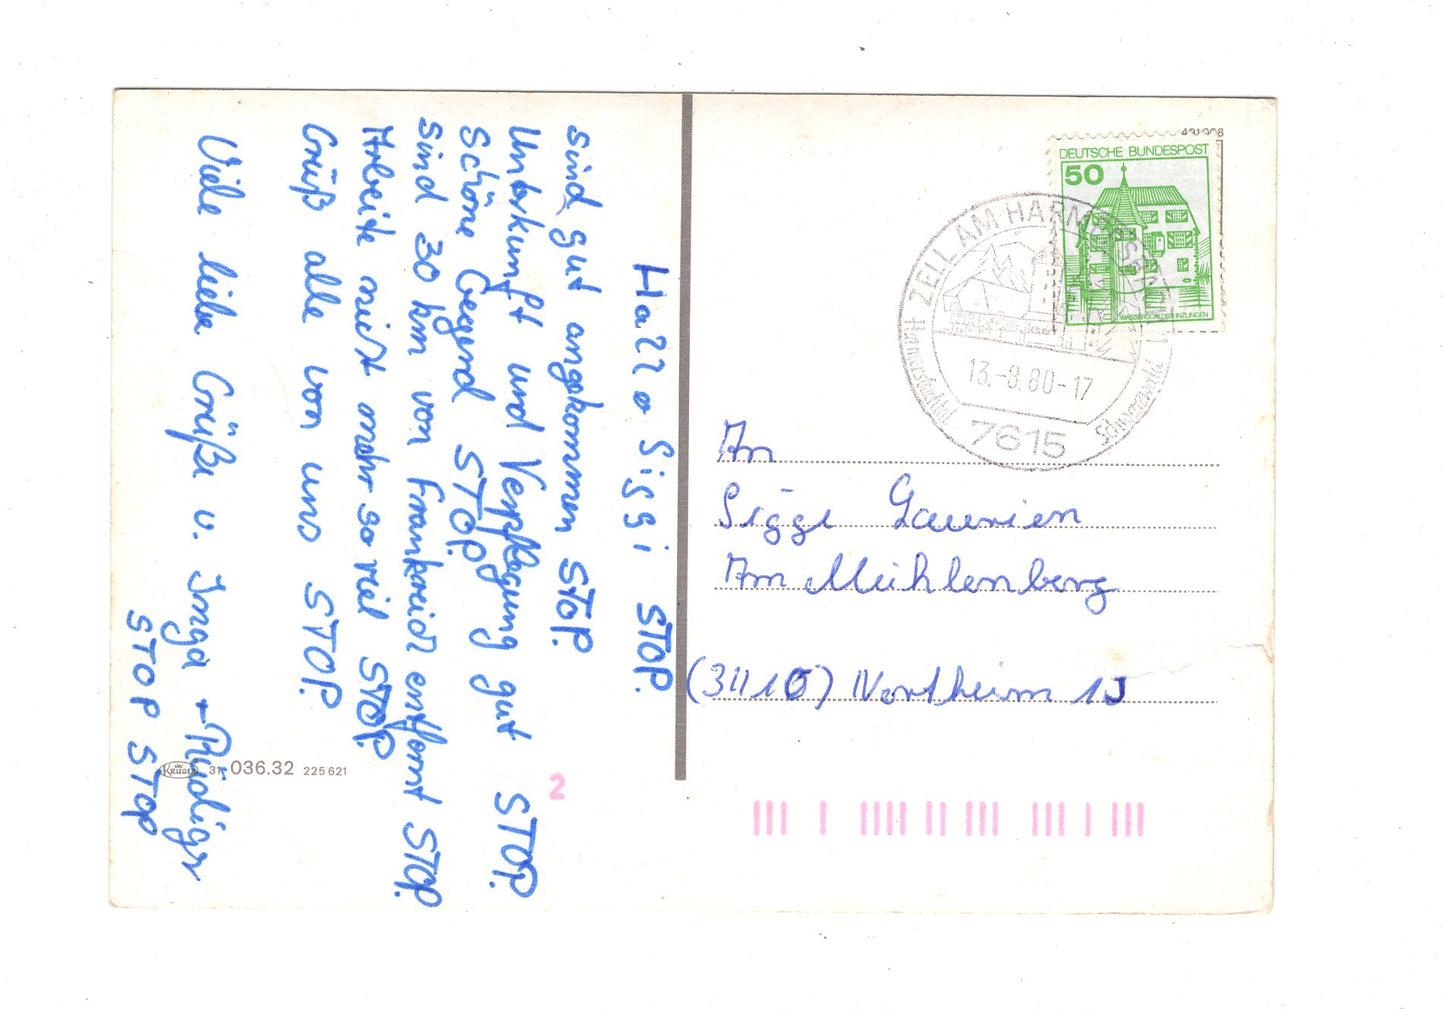 Hallo Siggi STOP.
sind gut angekommen STOP.
Unterkunft und Verpflegung gut STOP.
Schöne Gegend STOP.
sind 30 km von Frankreich entfernt STOP.
Arbeite nicht mehr so viel STOP.
Grüß alle von uns STOP.
Viele liebe Grüße u. Inga + Rüdiger
STOP STOP
KRÜGER 31 036.32 225 621
2
DEUTSCHE BUNDESPOST
50
WASSERSCHLOSS INZLINGEN
ZELL AM HARMERSBACH
Schwarzwald
13.-8.80-17
7615
An
Siggi
Am Mühlenberg
(3410) Northeim 1